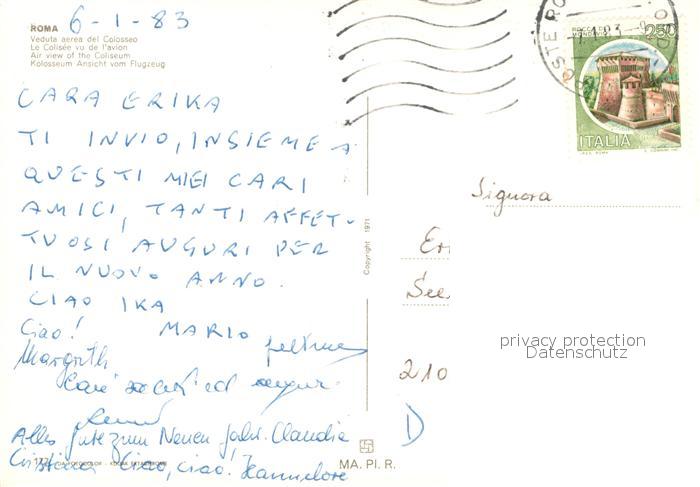 ROMA 6-1-83
Veduta aerea del Colosseo
Le Colisée vu de l'avion
Air view of the Coliseum
Kolosseum Ansicht vom Flugzeug
CARA ERIKA
TI INVIO, INSIEME A
QUESTI MIEI CARI
AMICI, TANTI AFFET-
TUOSI AUGURI PER
IL NUOVO ANNO.
CIAO IKA
Ciao! MARIO
Margrith
Cari saluti ed auguri
Alles Gute zum Neuen Jahr. Claudia
Cristina Ciao, ciao! Hannelore
Copyright 1971
MA. PI. R.
250
ITALIA
Signora
Er
See
210
D
privacy protection
Datenschutz